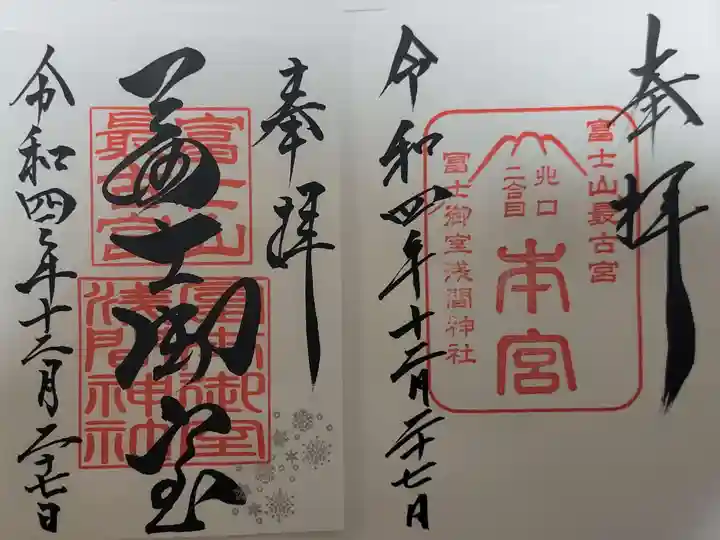 奉拝
富士山
最古宮
富士御室
浅間神社
富士御室
令和四年十二月二十七日
奉拝
富士山最古宮
北口
二合目
本宮
冨士御室浅間神社
令和四年十二月二十七日